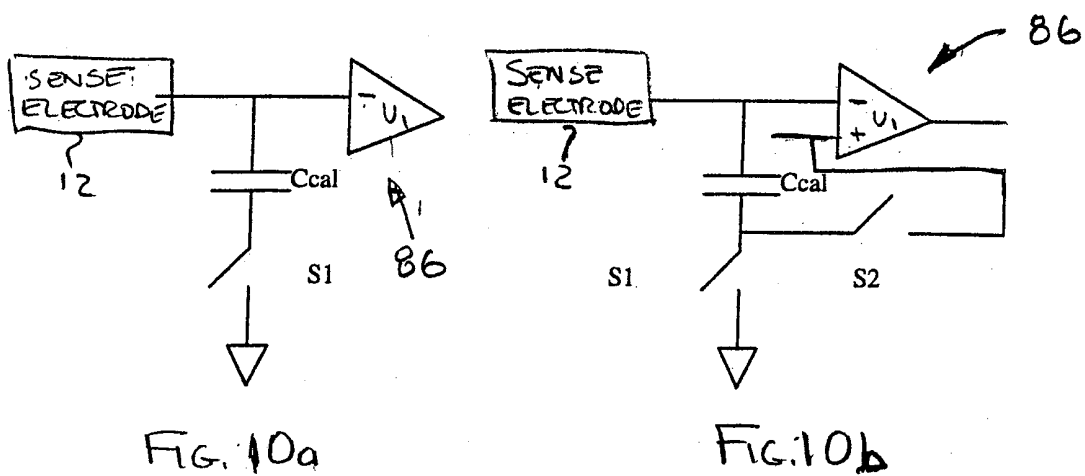 SENSE
ELECTRODE
12
- U1
Ccal
86
S1
FIG. 10a
86
SENSE
ELECTRODE
12
- U1
+
Ccal
S1
S2
FIG. 10b